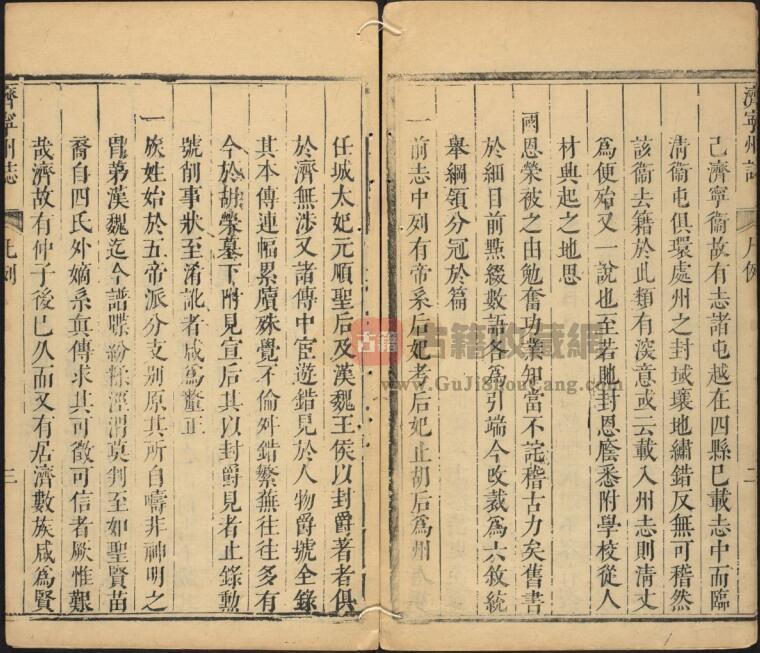 濟寧州志
凡例
二
己濟寧衞故有志諸屯越在四縣已載志中而臨
清衞屯俱環處州之封域壤地繡錯反無可稽然
該衞去籍於此類有深意或云載入州志則清丈
為便殆又一說也至若貤封恩廕悉附學校從人
材典起之地思
國恩榮被之由勉奮功業知當不詫稽古力矣舊書
於細目前點綴數語各為引端今改裁為六敘統
舉綱領分冠於篇
一前志中列有帝系后妃考后妃止胡后為州
任城太妃元順聖后及漢魏王侯以封爵著者俱
於濟無涉又諸傳中宦遊錯見於人物爵號全錄
其本傳連幅累牘殊覺不倫舛錯繁蕪往往多有
今於胡榮墓下附見宣后其以封爵見者止錄勳
號削事狀至淆訛者咸為釐正
一族姓始於五帝派分支別原其所自疇非神明之
冑第漢魏迄今譜牒紛粽涇渭莫判至如聖賢苗
裔自四氏外嫡系真傳求其可徵可信者厥惟艱
哉濟故有仲子後已久而又有居濟數族咸為賢
濟寧州志
凡例
三
古籍
古籍收藏網
www.GuJiShouCang.com